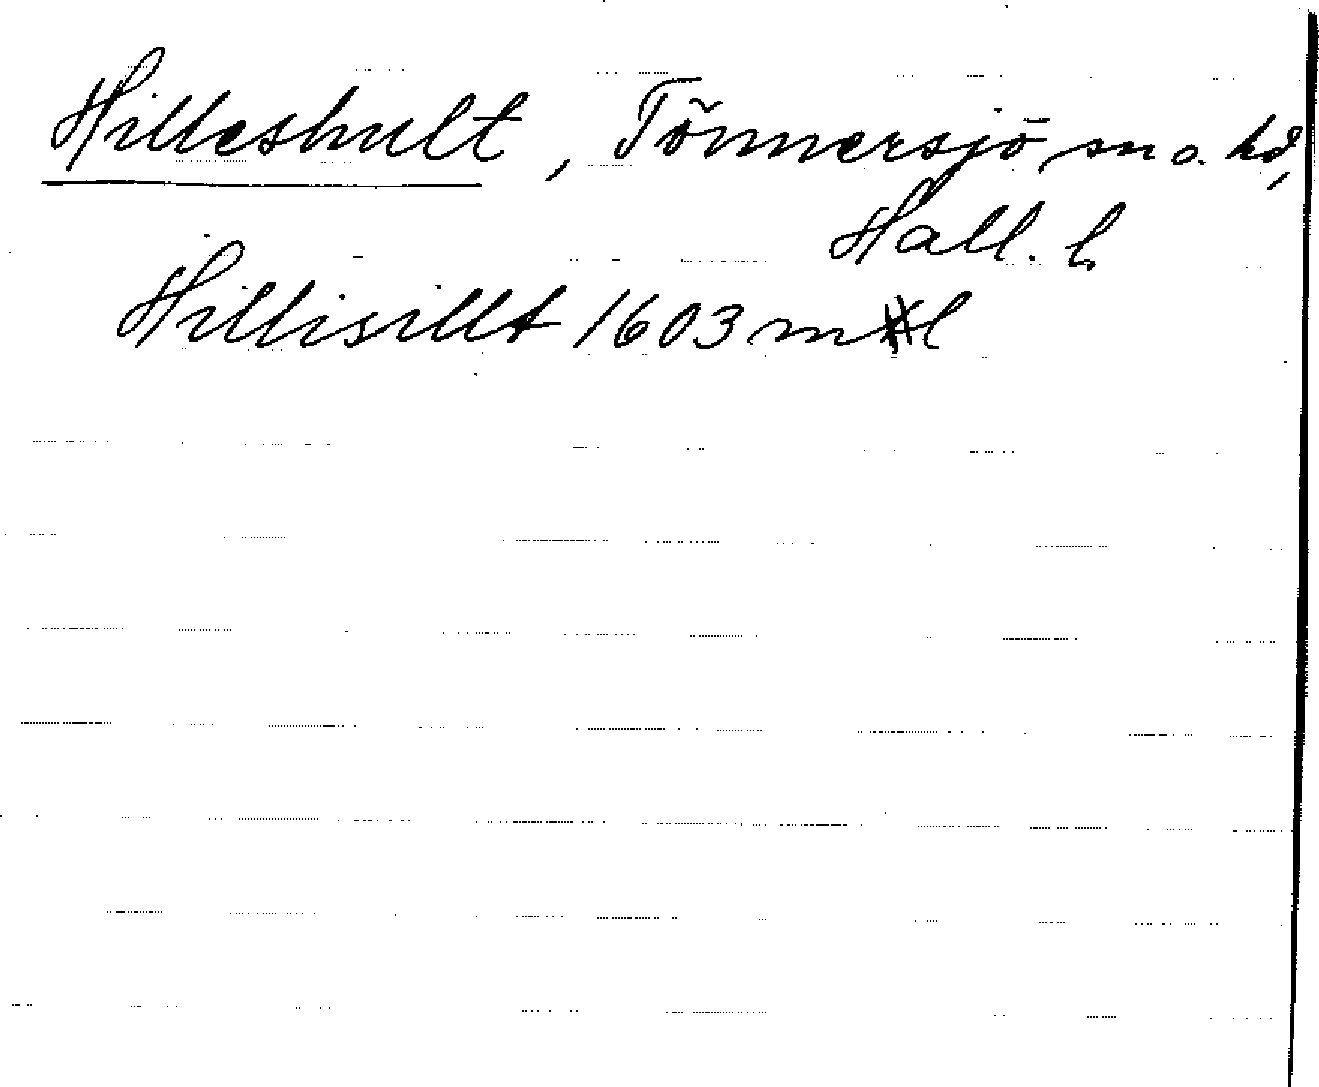 Hilleshult, Tönnersjö sn o. hd,
Hall. l.
Hillisillt 1603 ml